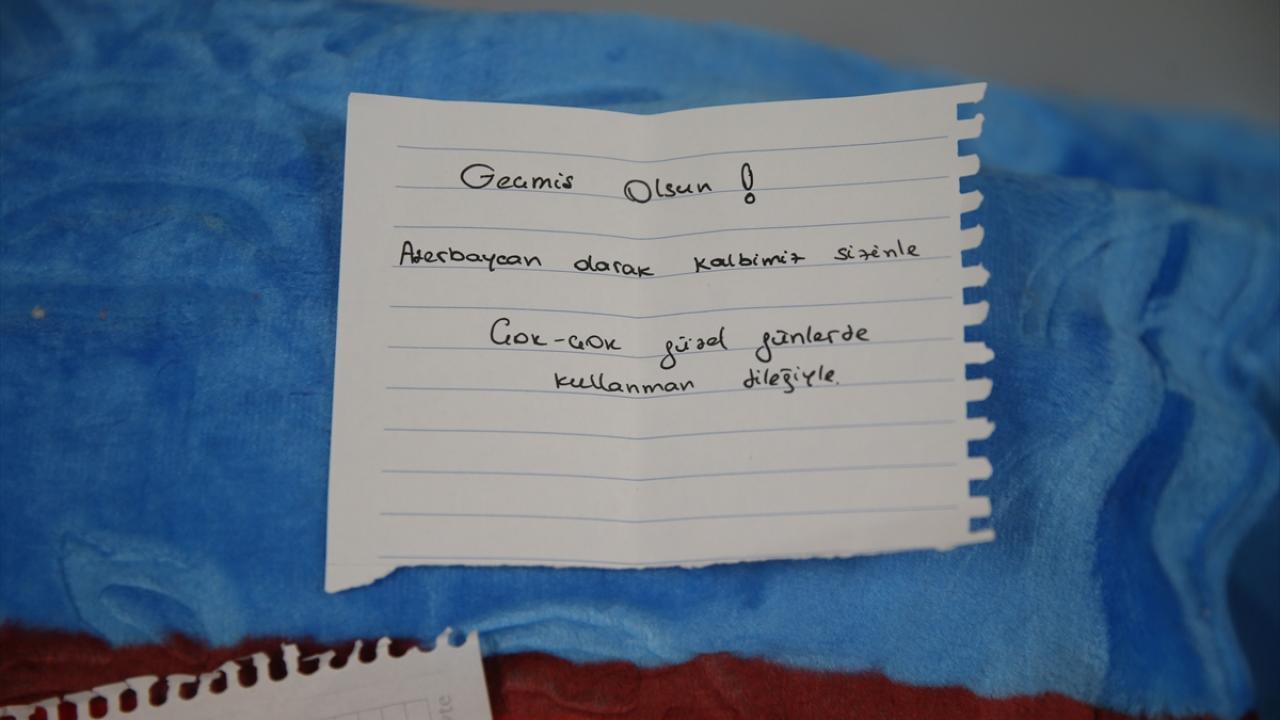 Gecmis Olsun !
Azerbaycan olarak kalbimiz sizinle
Cok-cok güzel günlerde
kullanman dileğiyle.